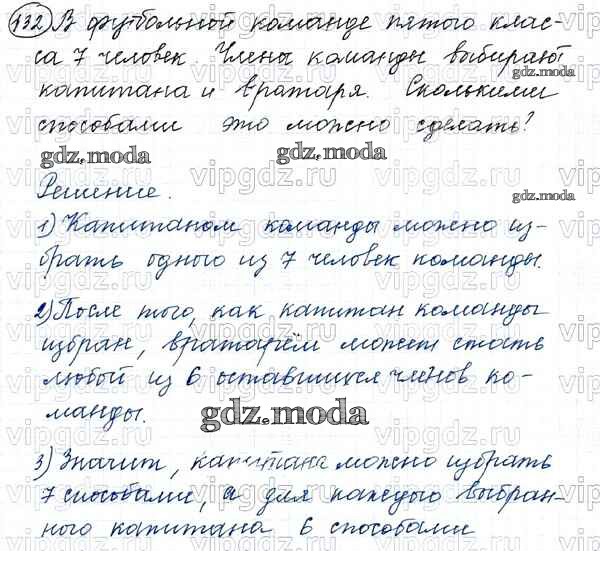 132) В футбольной команде пятого клас-
са 7 человек. Члены команды выбирают
капитана и вратаря. Сколькими
способами это можно сделать?
Решение.
1) Капитаном команды можно из-
брать одного из 7 человек команды.
2) После того, как капитан команды
избран, вратарём может стать
любой из 6 оставшихся членов ко-
манды.
3) Значит, капитана можно избрать
7 способами, а для каждого выбран-
ного капитана 6 способами
gdz.moda
gdz.moda
gdz.moda
gdz.moda
gdz.moda
vipgdz.ru